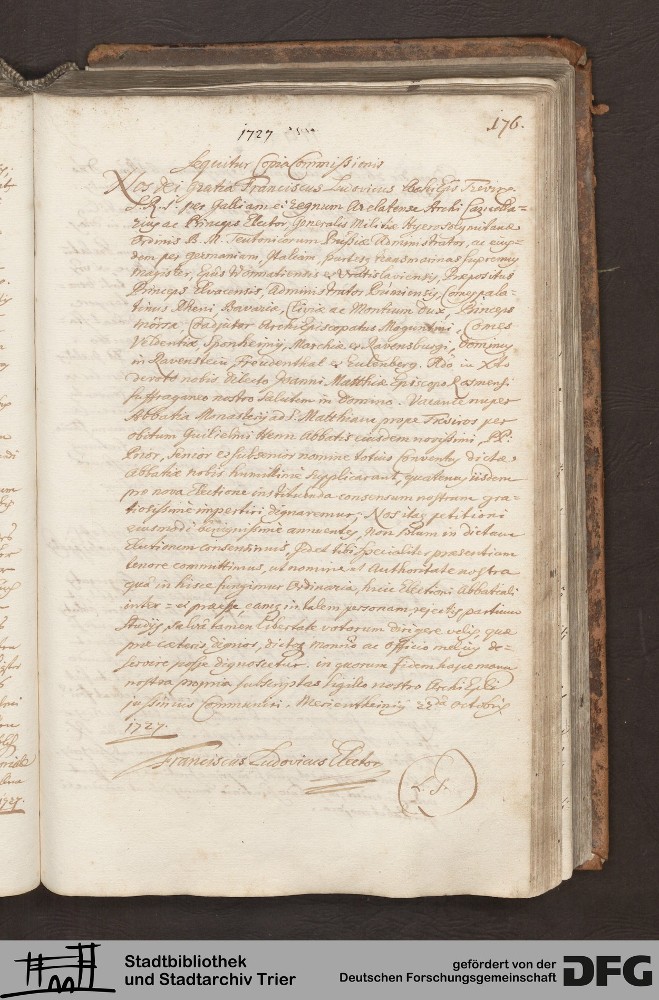 176.
1727
Sequitur Copia Commissionis
Nos Dei Gratia Franciscus Ludovicus Archi Eps Trevire
S. R. I. per Galliam et regnum Arelatense Archi Cancella-
rius ac Princeps Elector, Generalis Militiæ Hyerosolymitanæ
Ordinis B. M. Teutonicorum Prussiæ Administrator, ac ejus-
dem per Germaniam, Italiam, partesq transmarinas supremus
Magister, Epus Wormatiensis et Vratislaviensis, Præpositus
Princeps Elvacensis, Administrator Prumiensis, Comes pala-
tinus Rheni Bavariæ, Cliviæ ac Montium Dux, Princeps
Mörsæ, Coadjutor ArchiEpiscopatus Moguntini, Comes
Veldentiæ, Sponheimij, Marchiæ et Ravensburgi, Dominus
in Ravenstein Freüdenthal et Eulenberg. Rdo in Xto
nobis dilecto Joanni Matthiæ Episcopo Rosmensi
suffraganeo nostro Salutem in Domino. Vacante nuper
Abbatia Monasterij ad S. Matthiam prope Treviros per
obitum Guilielmi Henn Abbatis ejusdem novissimi, PP.
Prior, Senior et subsenior nomine totius Conventus dictæ
Abbatiæ nobis humillime supplicarunt, quatenus iisdem
pro nova Electione instituenda consensum nostrum gra-
tiosissime impertiri dignaremur; Nos itaq petitioni
ejusmodi benignissime annuentes, non solum in dictam
Electionem consensimus, sed et tibi specialiter præsentium
tenore committimus, ut nomine et Authoritate nostra
quâ in hisce fungimur Ordinaria, huic Electioni Abbatiali
inter = et præesse eamq in talem personam, rejectis partium
studijs, salvâ tamen libertate votorum dirigere velis, quæ
præ cæteris dignior, dicto Monrio ac officio melius de-
servire posse dignoscetur. in quorum fidem hasce manu
nostra propria subscriptas sigillo nostro ArchiEpli
jussimus communiri. Mergentheimij 22da Octobris
1727.
Franciscus Ludovicus Elector
L. S.
Stadtbibliothek
und Stadtarchiv Trier
gefördert von der
Deutschen Forschungsgemeinschaft
DFG